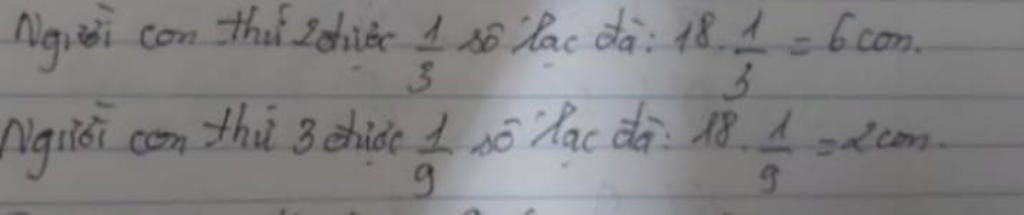 Người con thứ 2 được 1/3 số lạc đà: 18 . 1/3 = 6 con.
Người con thứ 3 được 1/9 số lạc đà: 18 . 1/9 = 2 con.